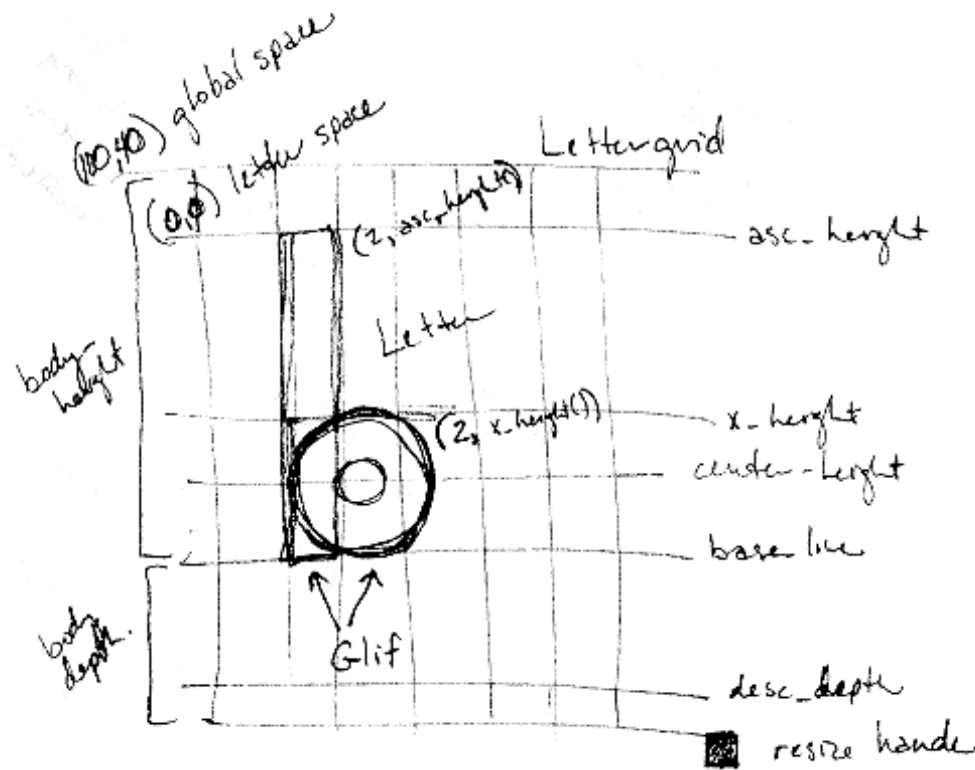 (100,40) global space
(0,0) letter space
Lettergrid
(2, asc_height())
asc_height
Letter
body-
height
(2, x_height())
x_height
center-height
base line
body
depth.
Glif
desc_depth
resize hande